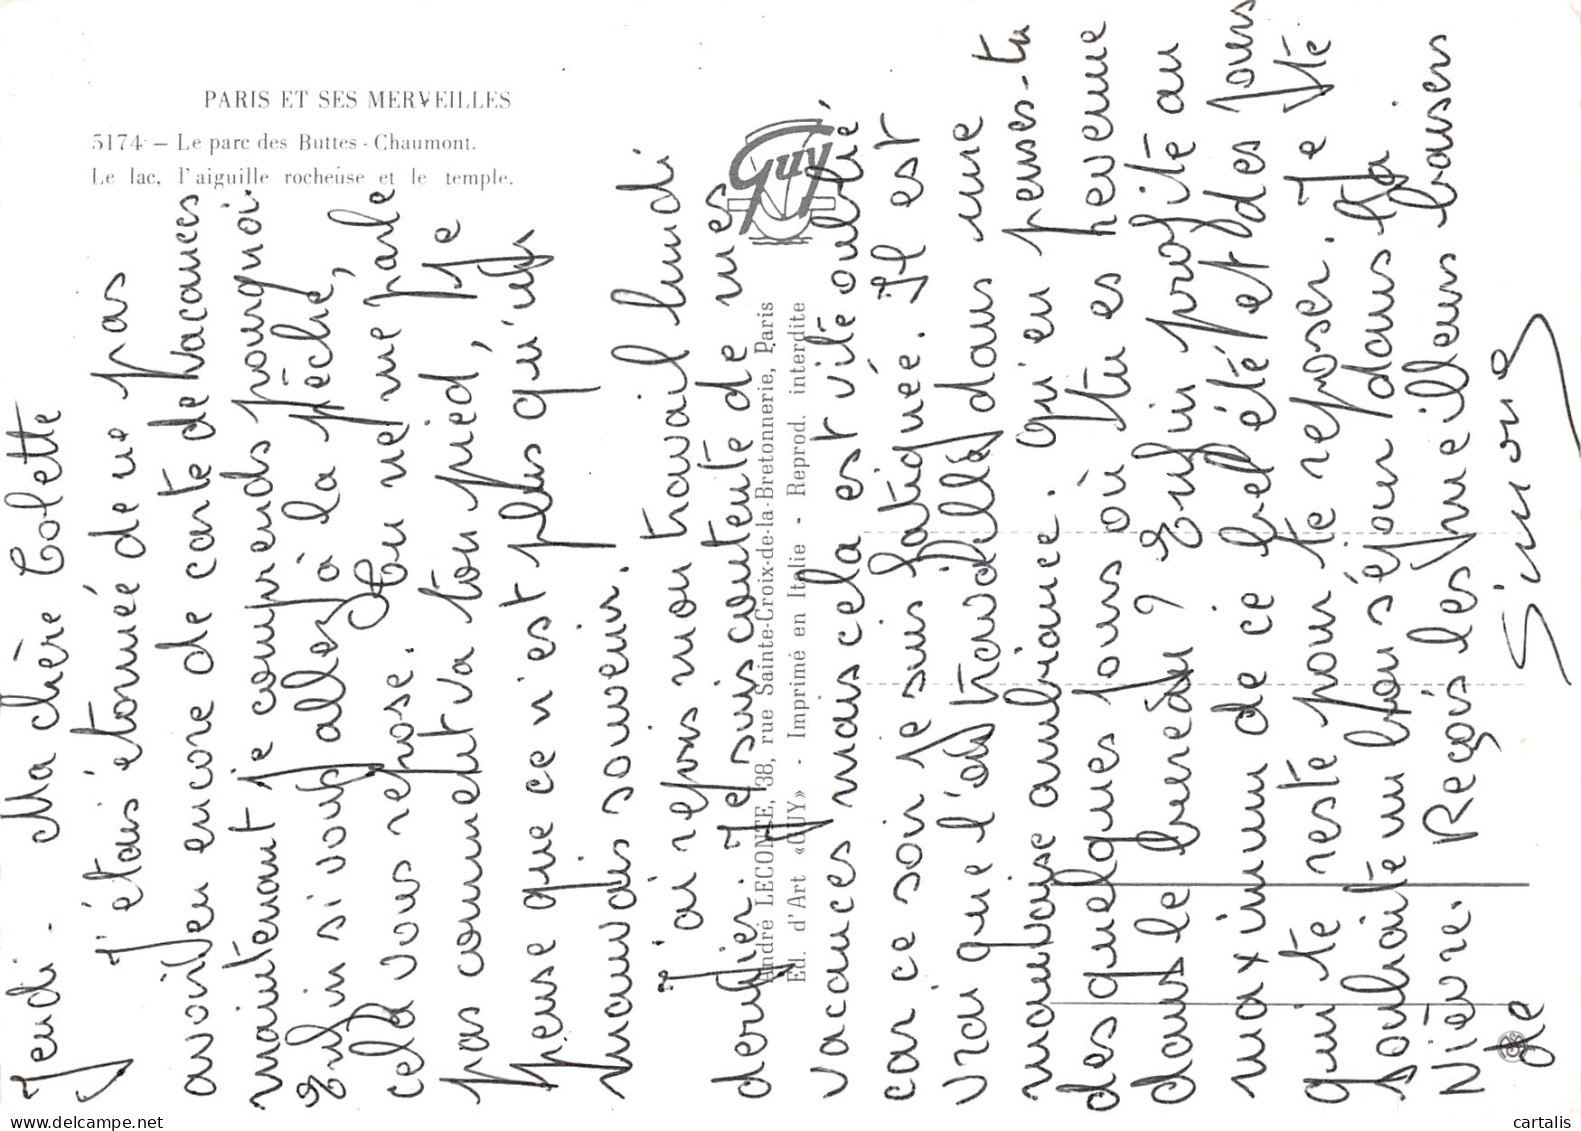 PARIS ET SES MERVEILLES
5174 — Le parc des Buttes - Chaumont.
Le lac, l'aiguille rocheuse et le temple.
Guy
André LECONTE, 38, rue Sainte-Croix-de-la-Bretonnerie, Paris
Ed. d'Art «GUY» - Imprimé en Italie - Reprod. interdite
Jeudi. Ma chère Colette
J'étais étonnée de ne pas
avoir eu encore de carte de vacances
maintenant je comprends pourquoi
Enfin si vous allez à la pêche,
cela vous repose. Tu ne me parle
pas comment va ton pied, je
pense que ce n'est plus qu'un
mauvais souvenir.
J'ai repris mon travail lundi
dernier. Je suis contente de mes
vacances mais cela est vite oublié,
car ce soir je suis fatiguée. Il est
vrai que l'on travaille dans une
mauvaise ambiance. qu'en penses-tu
des quelques jours où tu es revenue
dans le bureau ? Enfin profite au
maximum de ce bel été et des jours
qui te reste pour te reposer. Je te
souhaite un bon séjour dans la
Nièvre. Reçois les meilleurs baisers
de Simone
delcampe.net
cartalis